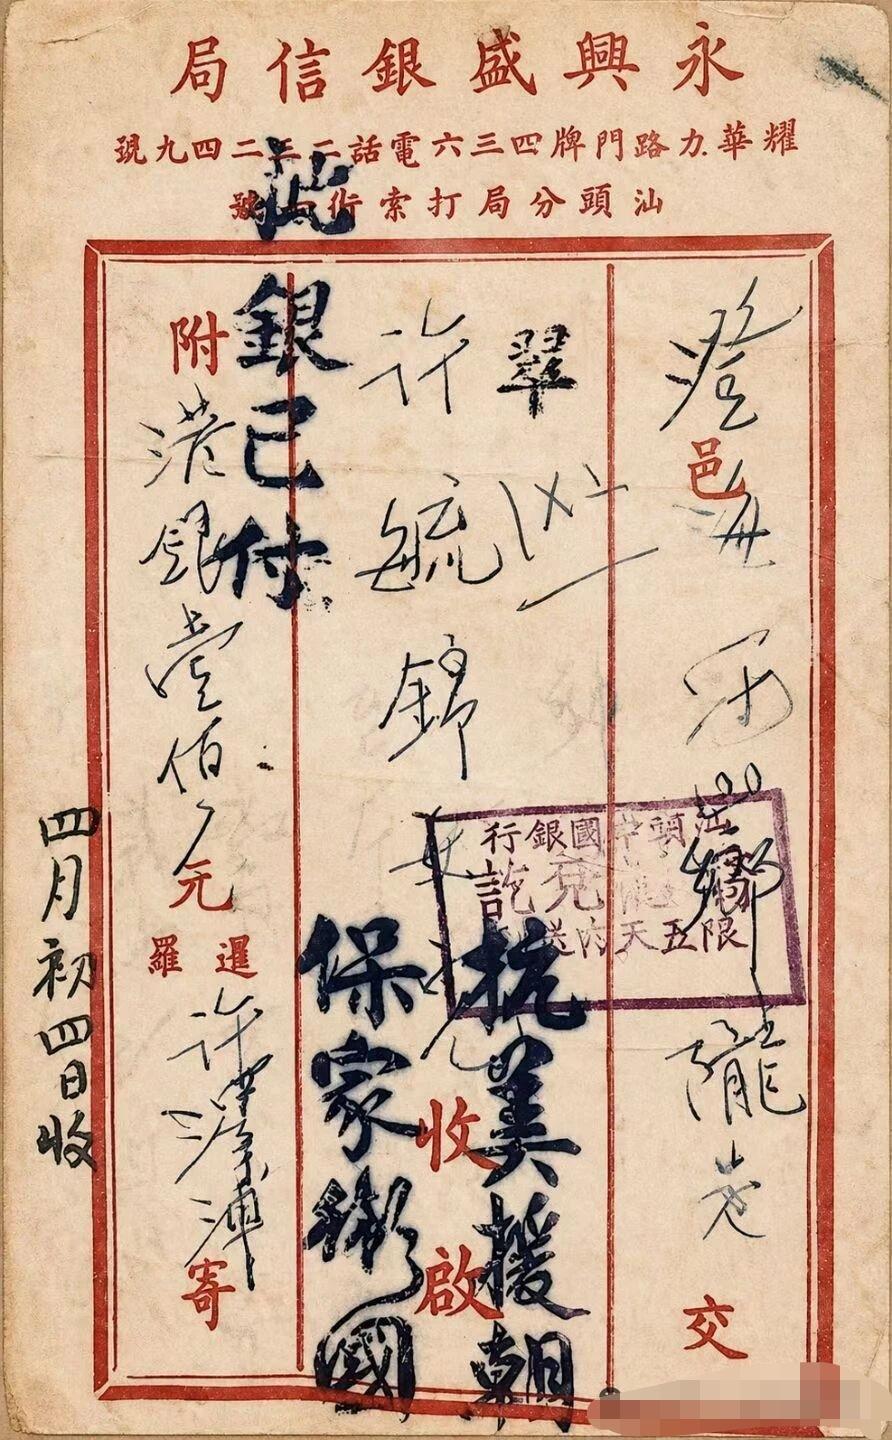 永興盛銀信局
耀華力路門牌四三六電話二三二四九號
汕頭分局打索街一號
澄邑海冠山鄉隴尾交
翠
許毓錦收啟
附港銀壹佰元
暹羅
許澤浦寄
此銀已付
汕頭中國銀行
兌訖
限五天內送
抗美援朝
保家衛國
四月初四日收